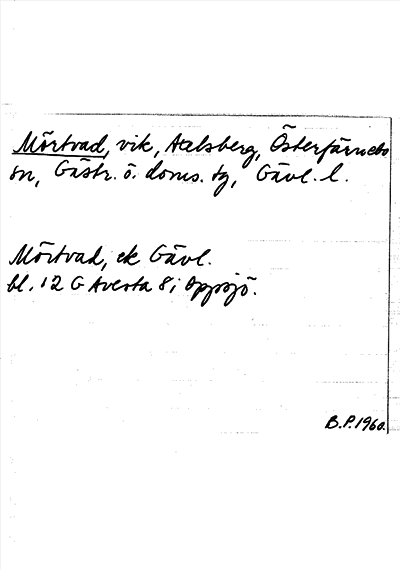 Mörtvad, vik, Aalsberg, Österfärnebo
sn, Gästr. ö. doms. tg, Gävl. l.
Mörtvad, ek Gävl.
bl. 12 G Avesta 8 i Oppsjö.
B.P. 1960.